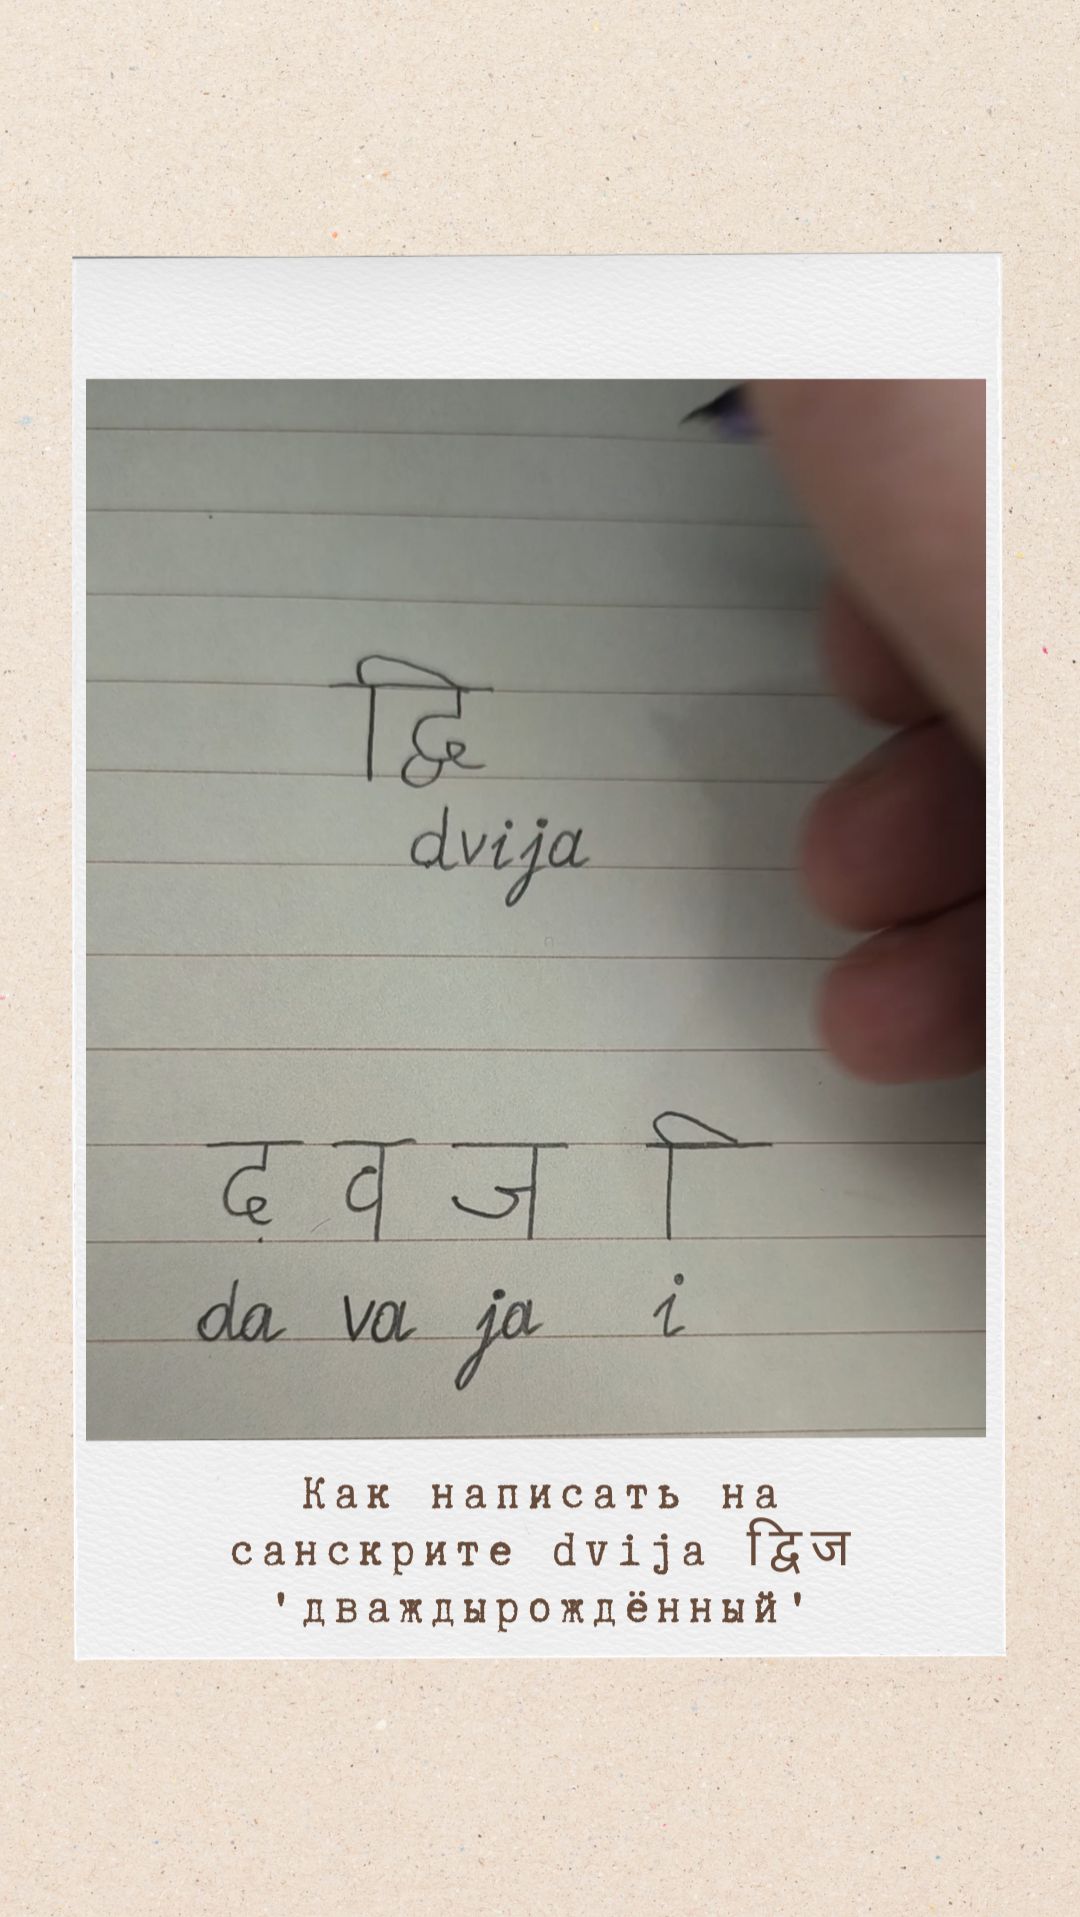 द्वि
dvija
द व ज ि
da va ja i
Как написать на
санскрите dvija द्विज
'дваждырождённый'